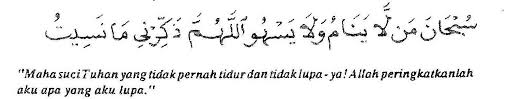 سُبْحَانَ مَنْ لَّا يَنَامُ وَلَا يَسْهُو اَللّٰهُمَّ ذَكِّرْنِي مَا نَسِيتُ
"Maha suci Tuhan yang tidak pernah tidur dan tidak lupa - ya! Allah peringkatkanlah
aku apa yang aku lupa."